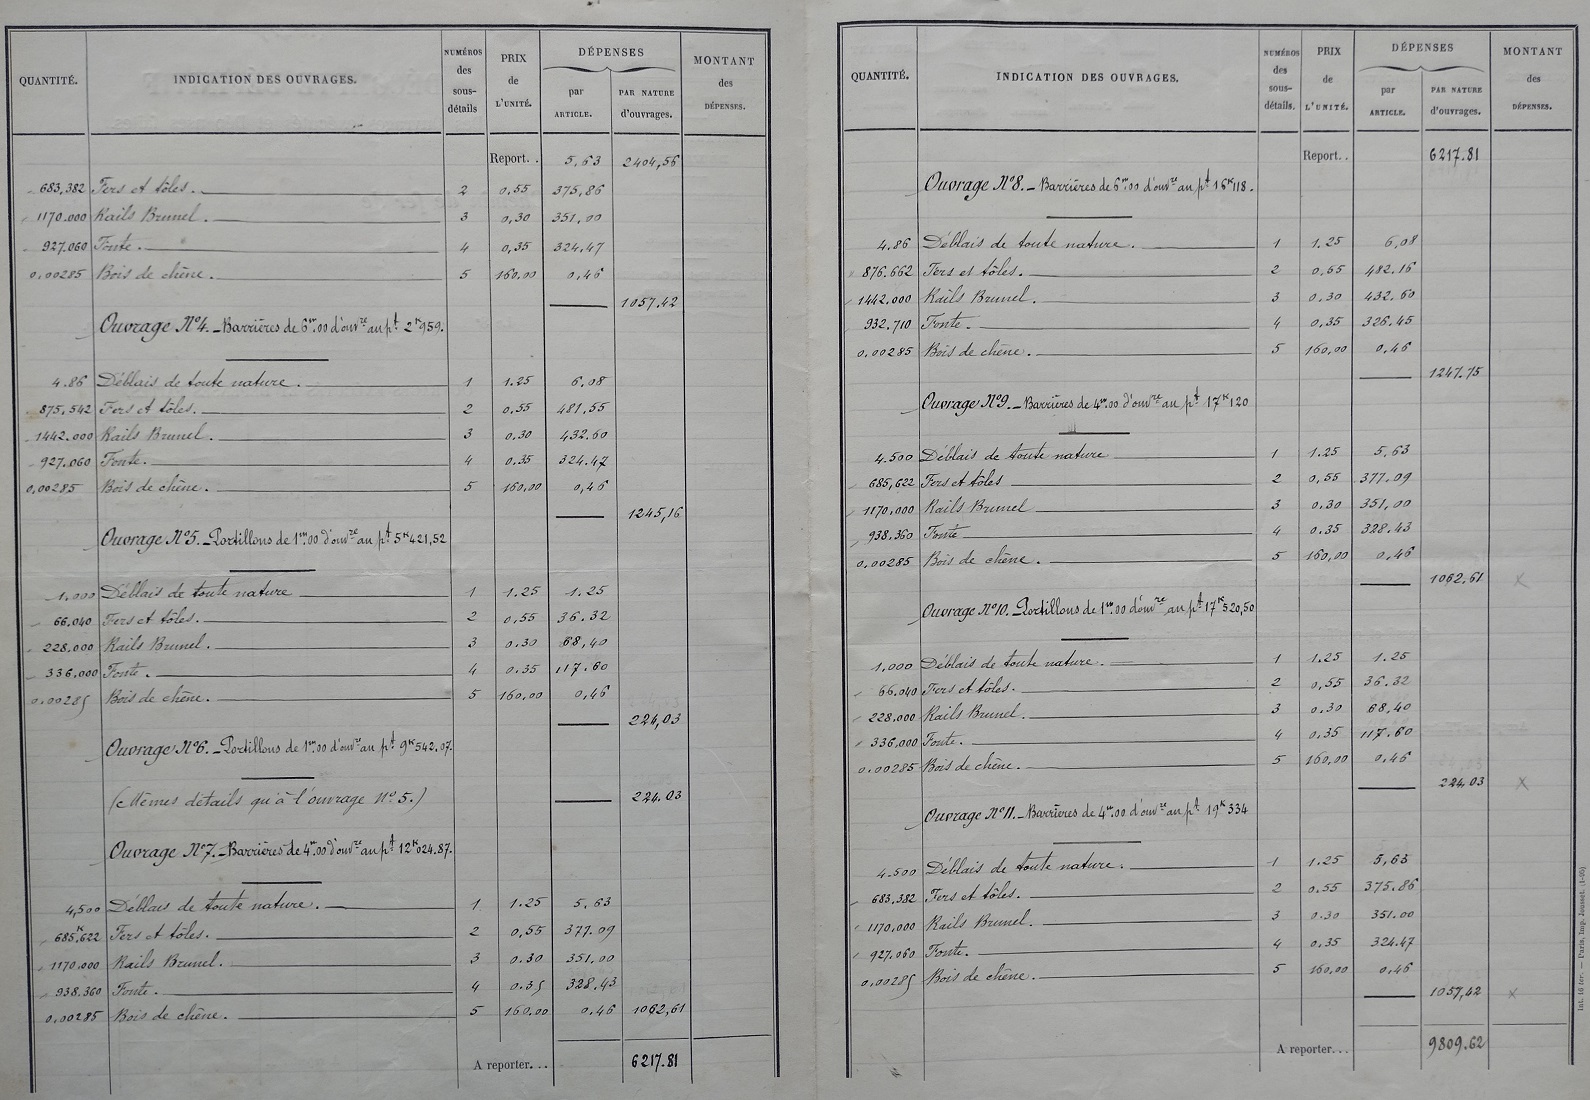 QUANTITÉ. INDICATION DES OUVRAGES. NUMÉROS des sous-détails PRIX de L'UNITÉ. DÉPENSES par ARTICLE. PAR NATURE d'ouvrages. MONTANT des DÉPENSES.
Report. . 5,63 2404,56
683,382 Fers et tôles. 2 0,55 375,86
1170.000 Rails Brunel. 3 0,30 351,00
927.060 Fonte. 4 0,35 324,47
0,00285 Bois de chêne. 5 160,00 0,46
1057.42
Ouvrage N°4. _ Barrières de 6m.00 d'ouvre au pt 2K959.
4.86 Déblais de toute nature. 1 1.25 6,08
875,542 Fers et tôles. 2 0,55 481,55
1442.000 Rails Brunel. 3 0.30 432.60
927.060 Fonte. 4 0.35 324.47
0,00285 Bois de chêne. 5 160,00 0,46
1245,16
Ouvrage N°5. _ Portillons de 1m.00 d'ouvre au pt 5K421,52
1.000 Déblais de toute nature 1 1.25 1.25
66.040 Fers et tôles. 2 0,55 36.32
228,000 Rails Brunel. 3 0.30 68,40
336,000 Fonte. 4 0.35 117.60
0.00285 Bois de chêne. 5 160,00 0,46
224,03
Ouvrage N°6. _ Portillons de 1m.00 d'ouvre au pt 9K542.07.
(Mêmes détails qu'à l'ouvrage N°5.) 224.03
Ouvrage N°7. _ Barrières de 4m.00 d'ouvre au pt 12K024.87.
4,500 Déblais de toute nature. 1 1.25 5,63
685K,622 Fers et tôles. 2 0,55 377.09
1170.000 Rails Brunel. 3 0.30 351,00
938.360 Fonte. 4 0.35 328.43
0,00285 Bois de chêne. 5 160.00 0.46 1062,61
A reporter. . . 6217.81
QUANTITÉ. INDICATION DES OUVRAGES. NUMÉROS des sous-détails. PRIX de L'UNITÉ. DÉPENSES par ARTICLE. PAR NATURE d'ouvrages. MONTANT des DÉPENSES.
Report. . 6217.81
Ouvrage N°8. _ Barrières de 6m.00 d'ouvre au pt 16K118.
4.86 Déblais de toute nature. 1 1.25 6,08
876.662 Fers et tôles. 2 0,55 482.16
1442.000 Rails Brunel. 3 0.30 432.60
932.710 Fonte. 4 0,35 326.45
0,00285 Bois de chêne. 5 160,00 0.46
1247.75
Ouvrage N°9. _ Barrières de 4m.00 d'ouvre au pt 17K120
4.500 Déblais de toute nature 1 1.25 5,63
685,622 Fers et tôles 2 0,55 377.09
1170,000 Rails Brunel 3 0.30 351,00
938,360 Fonte 4 0.35 328.43
0,00285 Bois de chêne. 5 160,00 0,46
1062,61 X
Ouvrage N°10. Portillons de 1m.00 d'ouvre au pt 17K520,50
1,000 Déblais de toute nature. 1 1.25 1.25
66.040 Fers et tôles. 2 0,55 36.32
228,000 Rails Brunel. 3 0.30 68,40
336,000 Fonte. 4 0.35 117.60
0.00285 Bois de chêne. 5 160,00 0.46
224,03 X
Ouvrage N°11. _ Barrières de 4m.00 d'ouvre au pt 19K334
4.500 Déblais de toute nature. 1 1.25 5,63
683,382 Fers et tôles. 2 0.55 375.86
1170,000 Rails Brunel. 3 0.30 351.00
927,060 Fonte. 4 0.35 324.47
0,00285 Bois de chêne. 5 160.00 0,46
1057,42 X
A reporter. . . 9809.62
Int. 16 fer. — Paris, Imp. Jousset. (1-05)